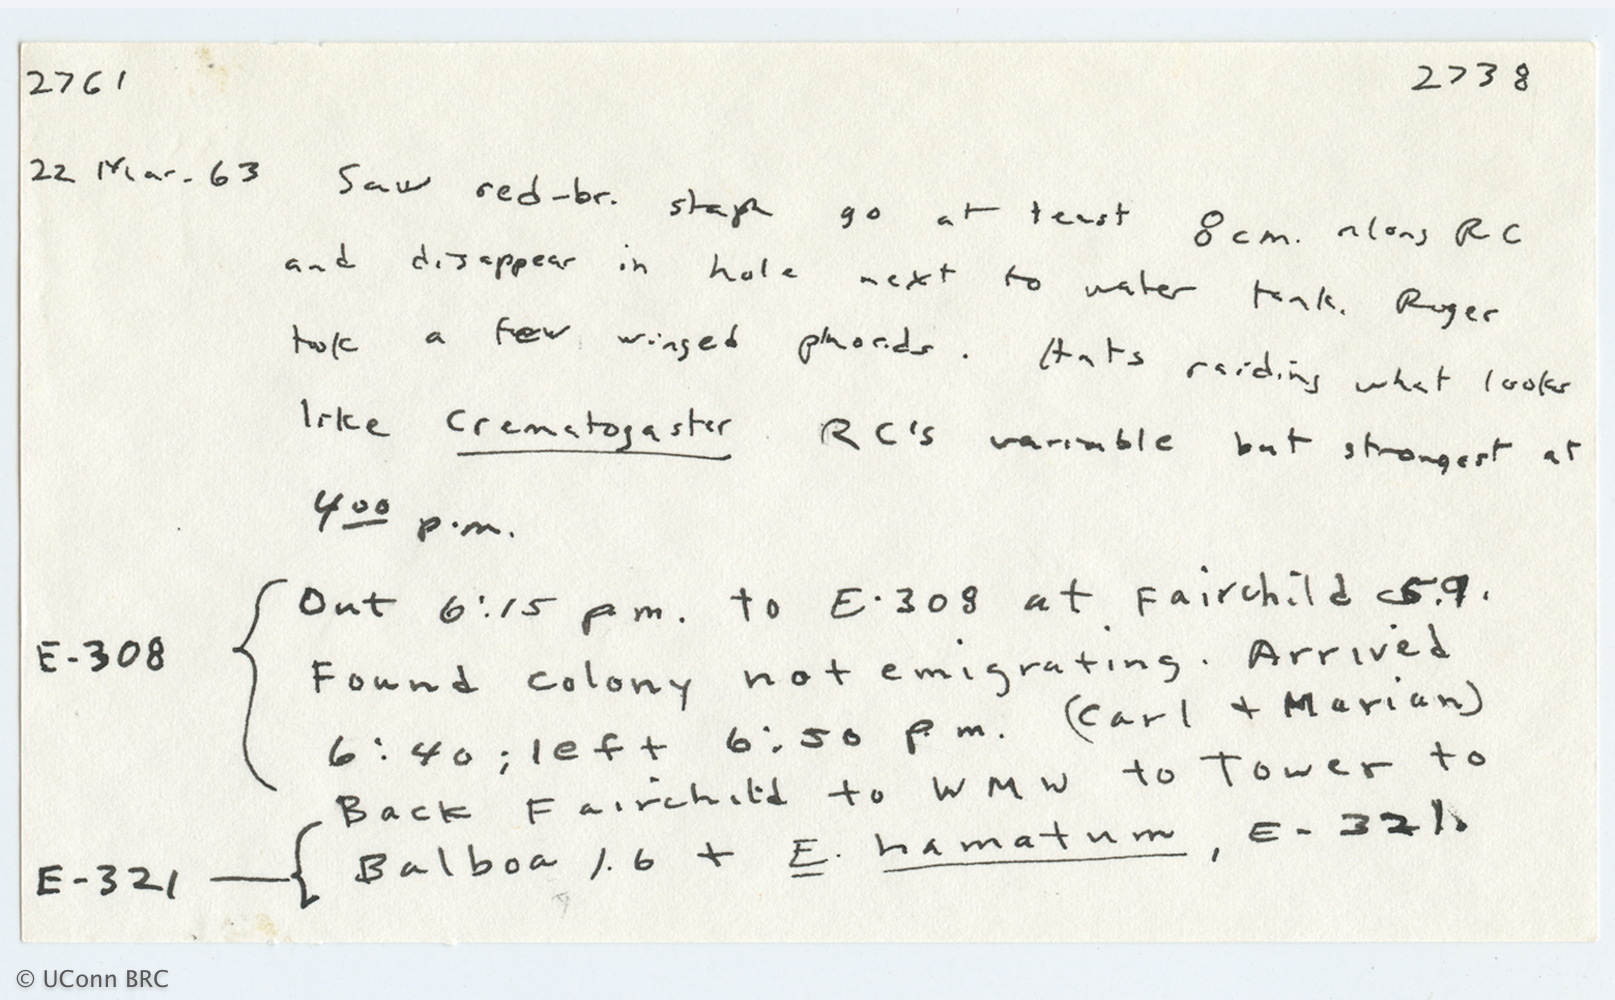 2761 2738
22 Mar. 63 Saw red-br. staph go at least 8 cm. along RC
and disappear in hole next to water tank. Roger
took a few winged phorids. Ants raiding what looks
like Crematogaster RC's variable but strongest at
4 00 p.m.
Out 6:15 p.m. to E-308 at Fairchild 5.9.
E-308 Found colony not emigrating. Arrived
6:40; left 6:50 p.m. (Carl + Marian)
Back Fairchild to WMW to Tower to
E-321 Balboa 1.6 + E. hamatum, E-321.
© UConn BRC